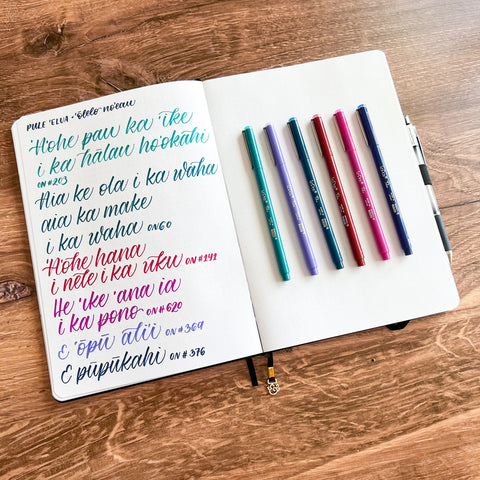 PULE ʻELUA • ʻŌlelo noʻeau
ʻAʻohe pau ka ʻike
i ka hālau hoʻokāhi
ON #203
Aia ke ola i ka waha
aia ka make
i ka waha ON 60
ʻAʻohe hana
i nele i ka uku ON #142
He ʻike ʻana ia
i ka pono ON #620
E ʻōpū aliʻi ON #369
E pūpūkahi ON # 376